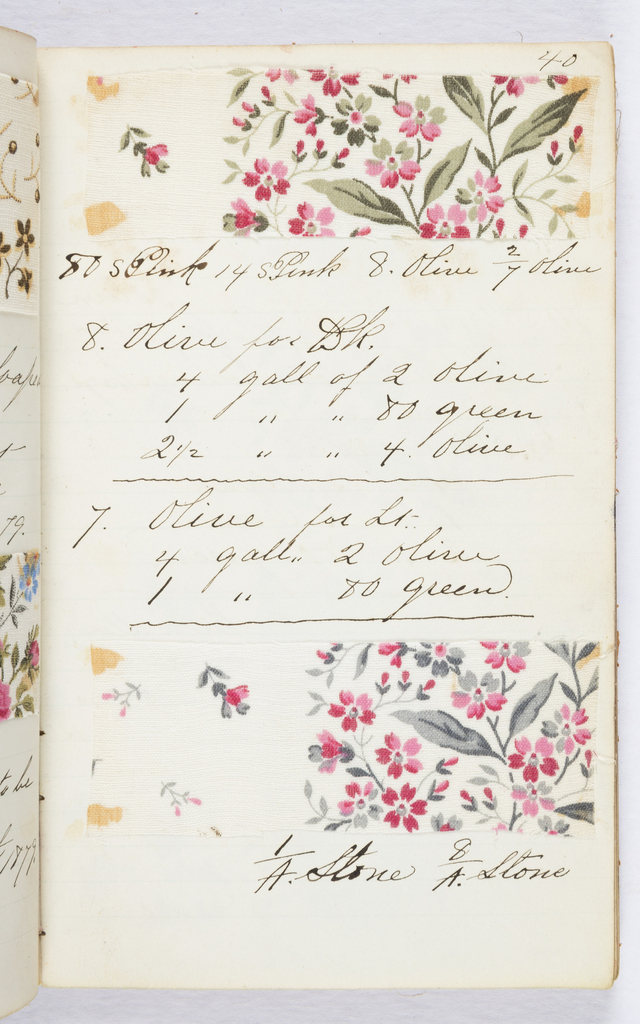 40
80 s Pink 14 s Pink 8. Olive 2/7 Olive
8. Olive for Bk.
4 gall of 2 Olive
1 " " 80 green
2 1/2 " " 4. Olive
7. Olive for Lt.
4 gall " 2 Olive
1 " 80 green.
1/A. Stone 8/A. Stone
79.
to be
1879.